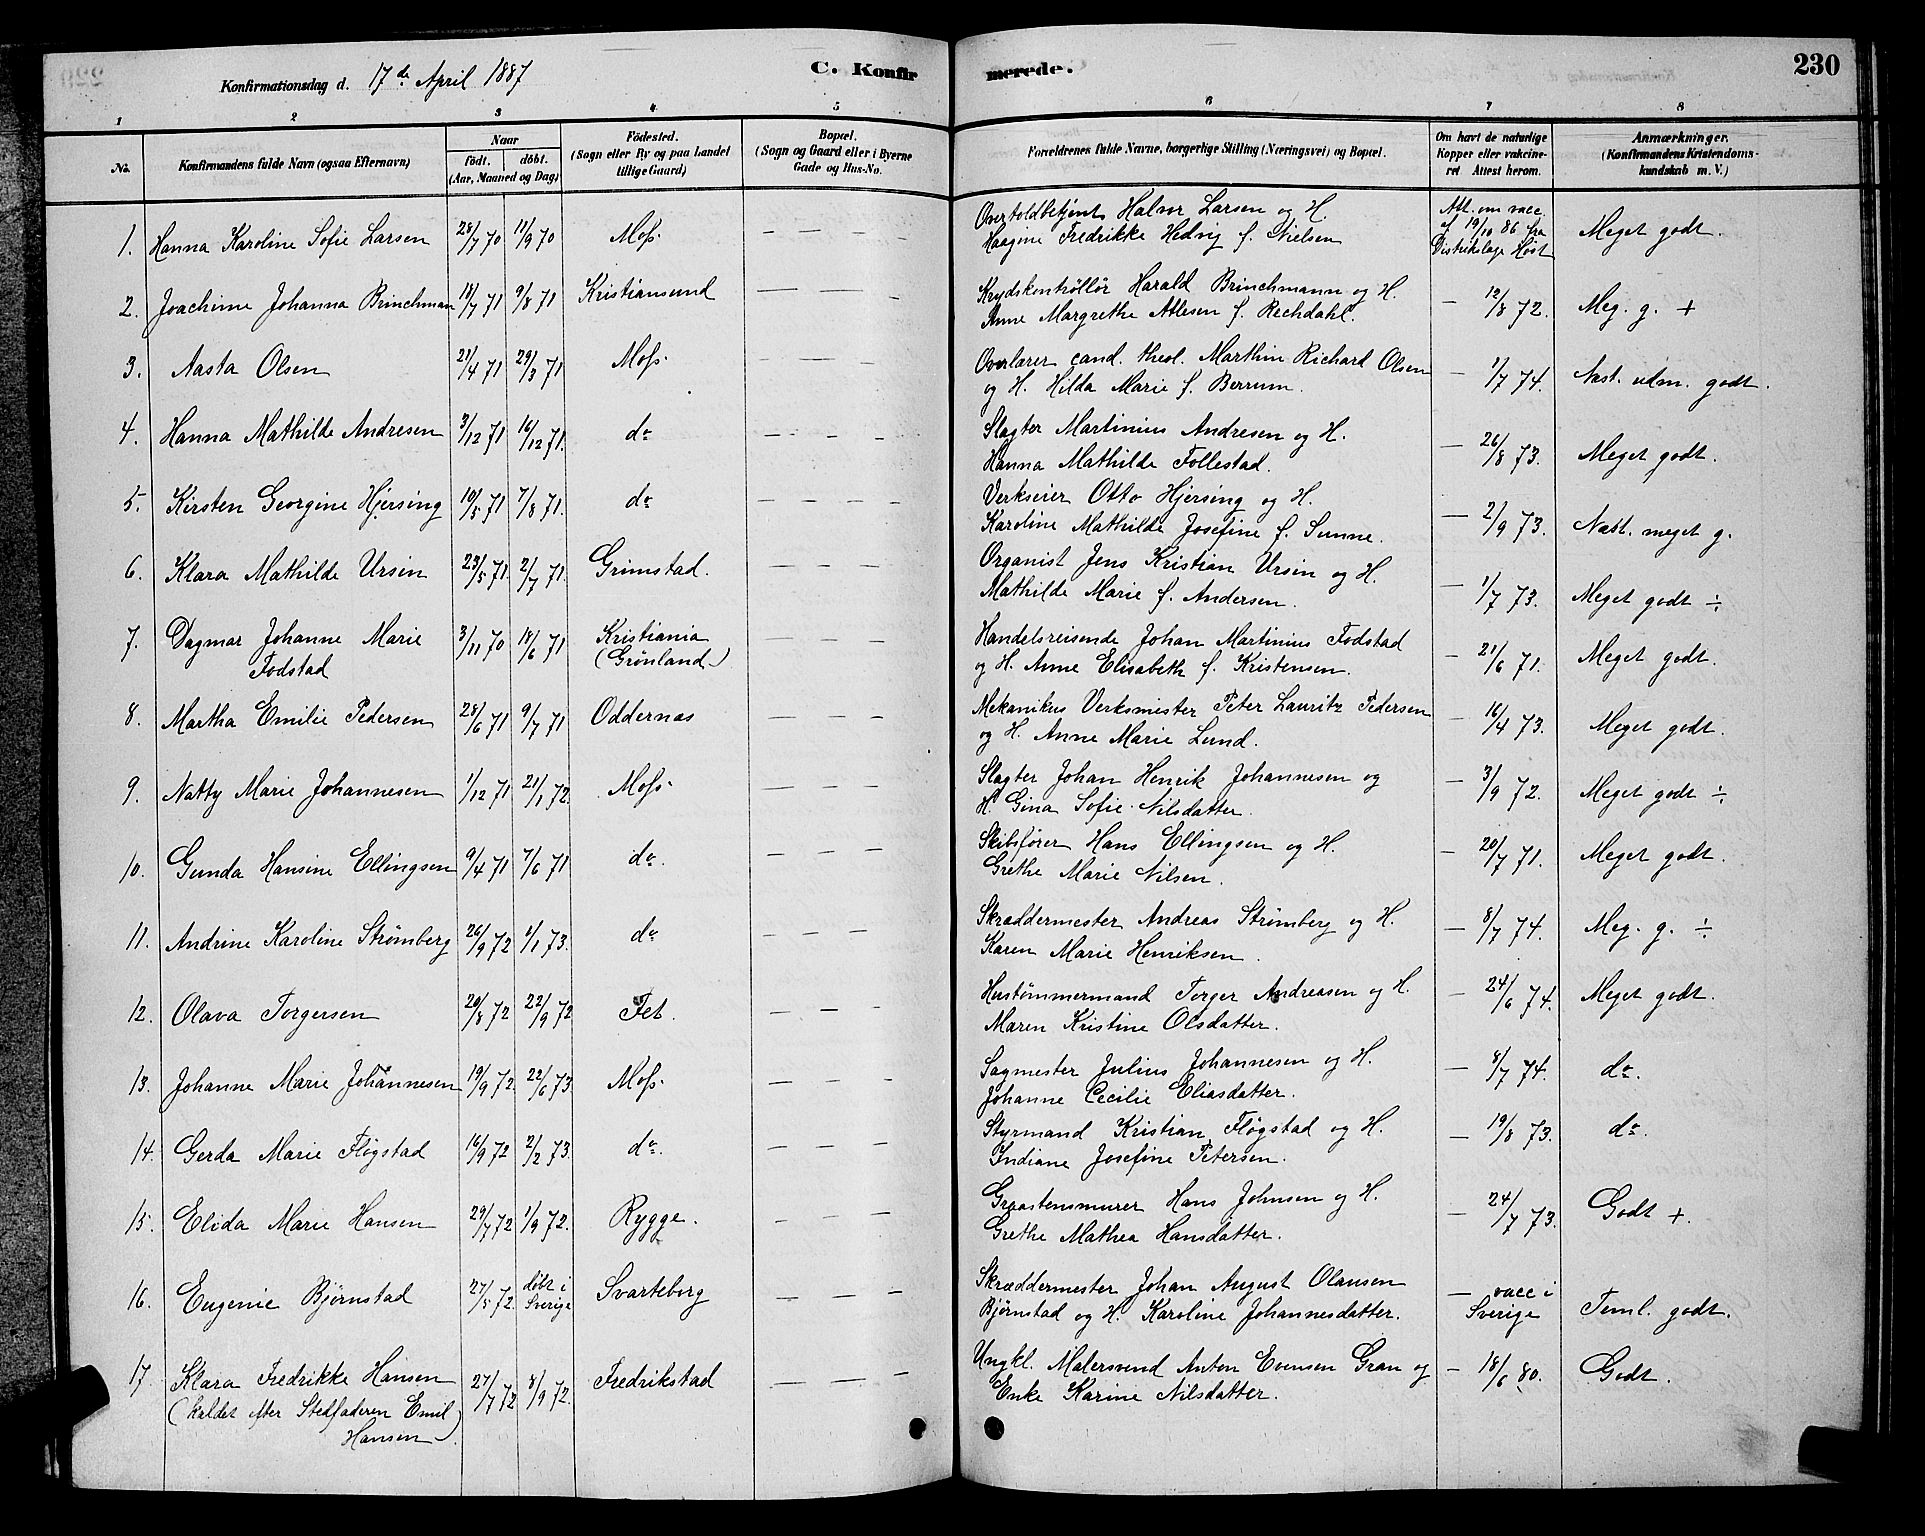 Konfirmationsdag d. 17de April 1887
C. Konfir merede.
230
1 2 3 4 5 6 7 8
No.
Konfirmandens fulde Navn (ogsaa Efternavn)
Naar
födt. döbt.
(Aar, Maaned og Dag)
Födested.
(Sogn eller By og paa Landet
tillige Gaard)
Bopæl.
(Sogn og Gaard eller i Byerne
Gade og Hus-No.
Forældrenes fulde Navne, borgerlige Stilling (Næringsvei) og Bopæl.
Om havt de naturlige
Kopper eller vakcine-
ret Attest herom.
Anmærkninger.
(Konfirmandens Kristendoms-
kundskab m. V.)
1. Hanna Karoline Sofie Larsen 28/7 70 11/9 70 Moss — — — —
Overtoldbetjent Halvor Larsen og H.
Haagine Fredrikke Hedvig f. Nielsen
Att. om vacc.
af 19/10 86 fra
Distriktslæge Høst
Meget godt.
2. Joachime Johanna Brinchman 18/7 71 9/8 71 Kristiansund — — — —
Krydskontrollör Harald Brinchmann og H.
Anne Margrethe Atlesen f. Rechdahl.
— 12/8 72. Meg. g. +
3. Aasta Olsen 21/4 71 29/3 71 Moss — — — —
Overlærer cand. theol. Marthin Richard Olsen
og H. Hilda Marie f. Berrum.
— 1/7 74. Næst. udm. godt.
4. Hanna Mathilde Andresen 3/12 71 16/12 71. do — — — —
Slagter Martinius Andresen og H.
Hanna Mathilde Follestad.
— 26/8 73. Meget godt.
5. Kirsten Georgine Hjersing 10/5 71 7/8 71. do — — — —
Verkseier Otto Hjersing og H.
Karoline Mathilde Josefine f. Sunne.
— 2/9 73. Næst. meget g.
6. Klara Mathilde Ursin 23/5 71. 2/7 71. Grimstad. — — — —
Organist Jens Kristian Ursin og H.
Mathilde Marie f. Andersen.
— 1/7 73. Meget godt ÷
7. Dagmar Johanne Marie
Fodstad
3/11 70 18/6 71 Kristiania
(Grønland)
— — — —
Handelsreisende Johan Martinius Fodstad
og H. Anne Elisabeth f. Kristensen.
— 21/6 71. Meget godt.
8. Martha Emilie Pedersen 28/6 71 9/7 71 Oddernæs — — — —
Mekanikus Verksmester Peter Lauritz Pedersen
og H. Anne Marie Lund.
— 16/4 73. Meget godt.
9. Natty Marie Johannesen 1/12 71 21/1 72. Moss — — — —
Slagter Johan Henrik Johannesen og
H. Gina Sofie Nilsdatter.
— 3/9 72. Meget godt ÷
10. Gunda Hansine Ellingsen 9/4 71 7/6 71 do. — — — —
Skibsfører Hans Ellingsen og H.
Grethe Marie Nilsen.
— 20/7 71. Meget godt.
11. Andrine Karoline Strömberg 26/9 72 1/1 73. do — — — —
Skræddermester Andreas Strömberg og H.
Karen Marie Henriksen.
— 8/7 74. Meg. g. ÷
12. Olava Torgersen 20/8 72 22/9 72 Fet. — — —
Hustømmermand Torger Andreasen og H.
Maren Kristine Olsdatter.
— 24/6 74. Meget godt.
13. Johanne Marie Johannesen 19/9 72. 22/6 73 Moss — — — —
Sagmester Julius Johannesen og H.
Johanne Cecilie Eliasdatter.
— 8/7 74. do.
14. Gerda Marie Fløgstad 16/9 72 2/2 73. do. — — — —
Styrmand Kristian Fløgstad og H.
Indiane Josefine Petersen.
— 19/8 73. do.
15. Elida Marie Hansen 29/7 72 1/9 72. Rygge. — — — —
Graastensmurer Hans Johnsen og H.
Grethe Mathea Hansdatter.
— 24/7 73. Godt +.
16. Eugenie Bjørnstad 27/5 72. döbt i
Sverige
Svarteborg — — — —
Skræddermester Johan August Olausen
Bjørnstad og H. Karoline Johannesdatter.
— vacc i
Sverige
Teml. godt.
17. Klara Fredrikke Hansen
(kaldet efter Stedfaderen Emil
Hansen)
27/7 72 8/9 72. Fredrikstad — — — —
Ungkl. Malersvend Anton Evensen Gran og
Enke Karine Nilsdatter.
— 18/6 80. Godt.